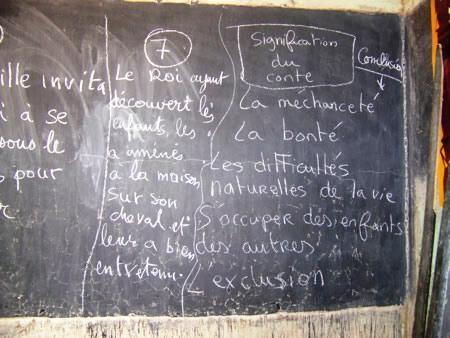 ille invita
i à se
sous le
s pour
r.
7
Le Roi ayant
découvert les
enfants, les
a amenés
à la maison
sur son
cheval et
leur a bien
entretenu.
Signification
du
conte
Conclusion
La méchanceté
La bonté
Les difficultés
naturelles de la vie
S'occuper des enfants
des autres
L'exclusion